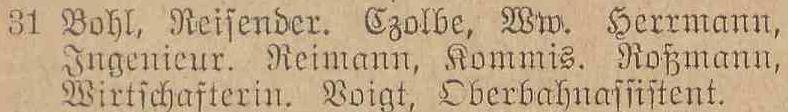 31 Bohl, Reisender. Czolbe, Ww. Herrmann,
Ingenieur. Reimann, Kommis. Roßmann,
Wirtschafterin. Voigt, Oberbahnassistent.